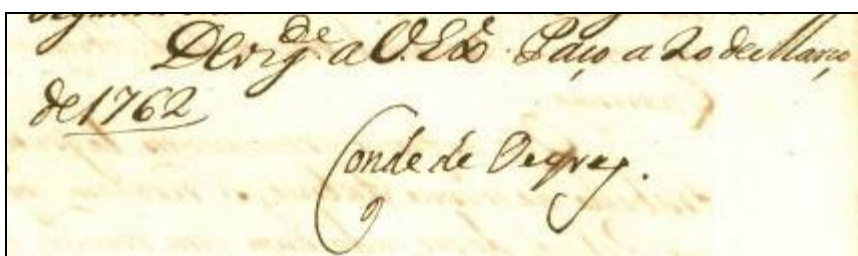 D.s g.de a V. Ex.ª Paço a 20 de Março
de 1762
Conde de Oeyras.